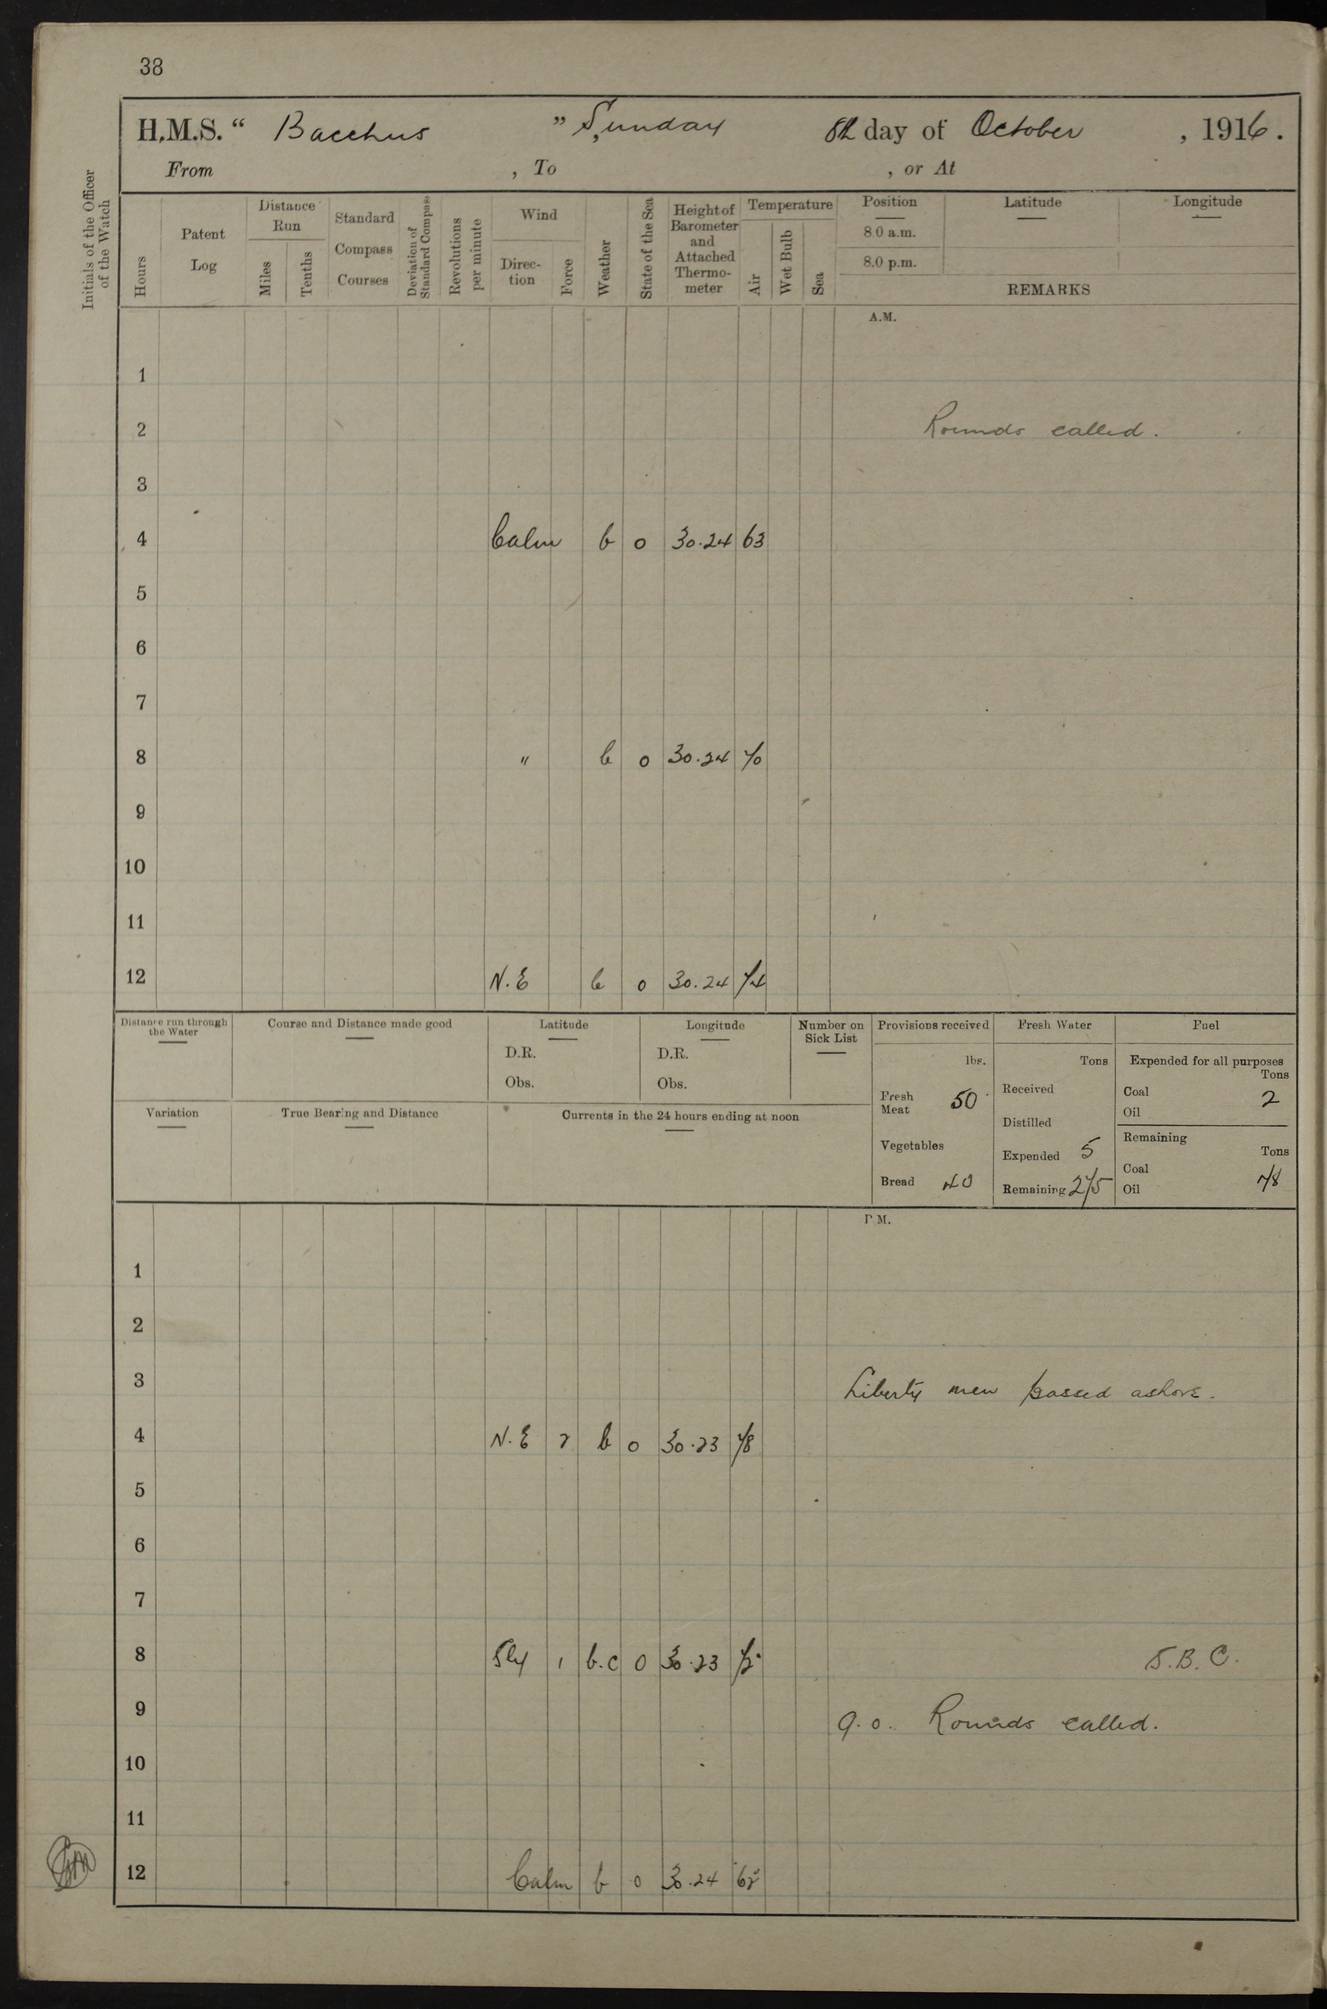 38
H.M.S. “ Bacchus ” Sunday 8th day of October , 1916.
From , To , or At
Initials of the Officer of the Watch
Hours
Patent Log
Distance Run
Miles
Tenths
Standard Compass Courses
Deviation of Standard Compass
Revolutions per minute
Wind
Direc-tion
Force
Weather
State of the Sea
Height of Barometer and Attached Thermo-meter
Temperature
Air
Wet Bulb
Sea
Position Latitude Longitude
8.0 a.m.
8.0 p.m.
REMARKS
A.M.
1
2 Rounds called.
3
4 Calm b o 30.24 63
5
6
7
8 " b o 30.24 70
9
10
11
12 N.E b o 30.24 74
Distance run through the Water
Course and Distance made good
Latitude
D.R.
Obs.
Longitude
D.R.
Obs.
Number on Sick List
Provisions received
lbs.
Fresh Meat 50
Vegetables
Bread 40
Fresh Water
Tons
Received
Distilled
Expended 5
Remaining 275
Fuel
Expended for all purposes
Tons
Coal 2
Oil
Remaining
Tons
Coal 78
Oil
Variation
True Bearing and Distance
Currents in the 24 hours ending at noon
P.M.
1
2
3 Liberty men passed ashore.
4 N.E 2 b o 30.23 78
5
6
7
8 Sly 1 b.c 0 30.23 72 S.B.C.
9 9.0. Rounds called.
10
11
12 Calm b o 30.24 62